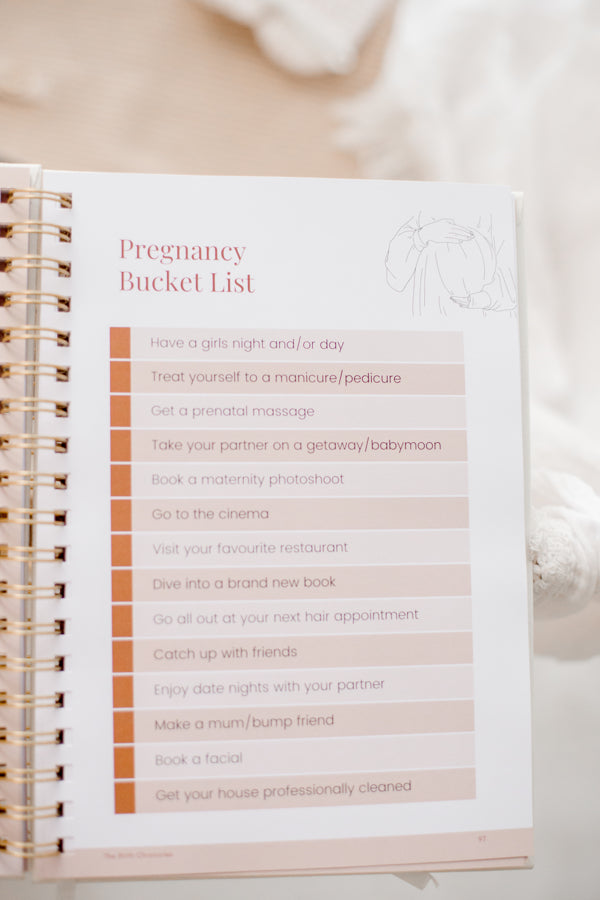 Pregnancy
Bucket List
Have a girls night and/or day
Treat yourself to a manicure/pedicure
Get a prenatal massage
Take your partner on a getaway/babymoon
Book a maternity photoshoot
Go to the cinema
Visit your favourite restaurant
Dive into a brand new book
Go all out at your next hair appointment
Catch up with friends
Enjoy date nights with your partner
Make a mum/bump friend
Book a facial
Get your house professionally cleaned
The Birth Chronicles
97